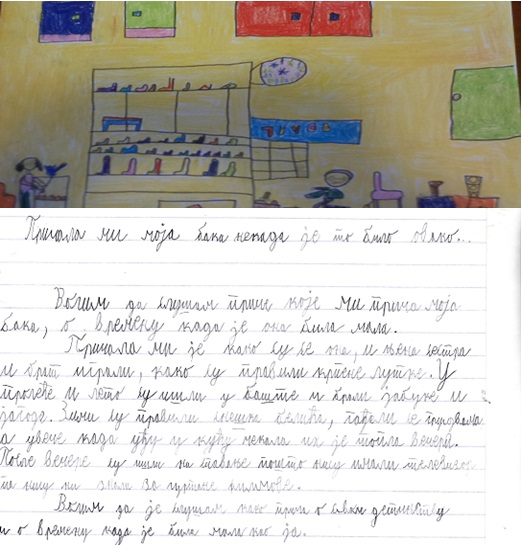 Причала ми моја бака некада је то било овако...
Волим да слушам приче које ми прича моја
бака, о времену када је она била мала.
Причала ми је како су се она, и њена сестра
и брат играли, како су правили крпене лутке. У
пролеће и лето су ишли у баште и брали јабуке и
јагода. Зими су правили снешка белића, гађали се грудвама
а увече када уђу у кућу чекала их је топла вечера.
После вечере су ишли на спавање пошто нису имали телевизор
па нису ни знали за цртане филмове.
Волим да је слушам како прича о свом детињству
и о времену када је била мала као ја.